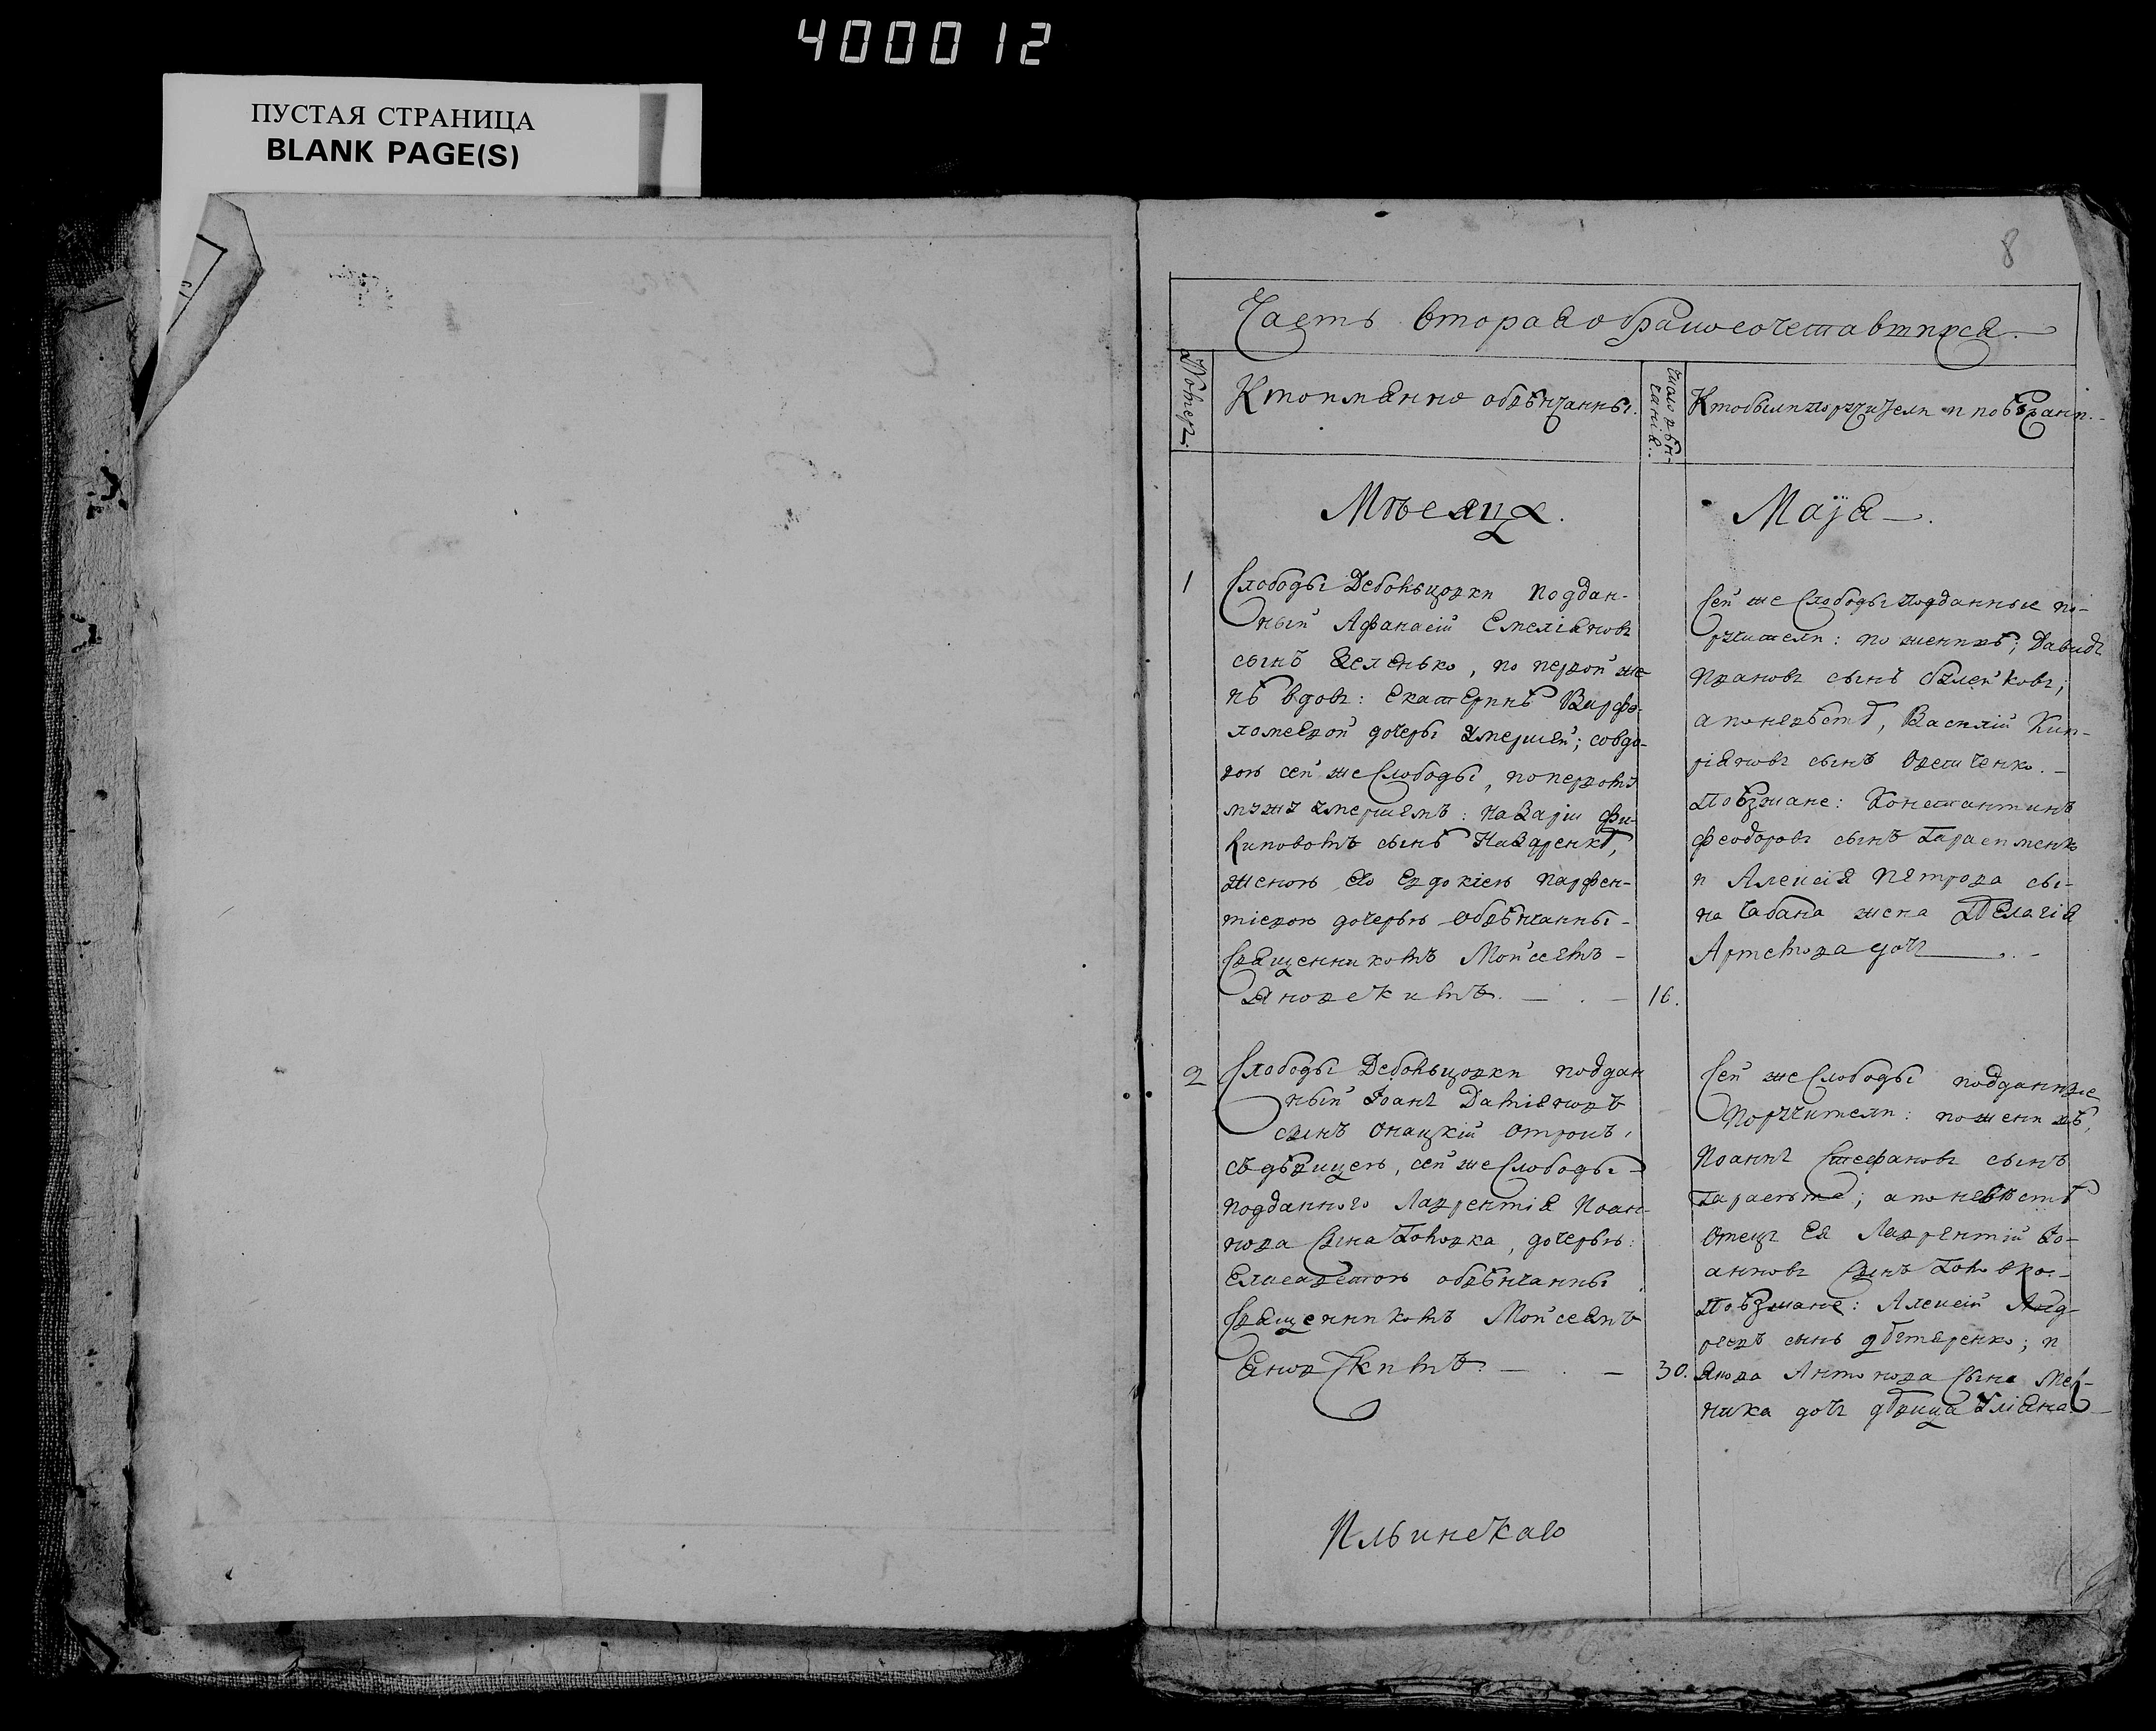 400012
ПУСТАЯ СТРАНИЦА
BLANK PAGE(S)
8
Часть вторая о бракосочетавшихся.
Номеръ.
Кто именно обвѣнчанны.
Число вѣн-
чанія.
Кто были поручители и поѣзжани.
Мѣсяцъ.
Маія.
1
Слободы Дебальцовки поддан-
ный Афанасій Емеліяновъ
сынъ Зеленько, по первой же
нѣ вдовъ: Екатеринѣ Варфо-
ломеевой дочеры умершей; со вдо-
вою сей же Слободы, по первомъ
мужу умершемъ:
сынѣ Назаренкѣ,
женою его Евдокіею Парфен-
тіевою дочерью обвѣнчанны
Священникомъ Моисеемъ
Яновскимъ.
16.
Сей же Слободы подданные по-
ручители: по женихѣ; Давидъ
Ивановъ сынъ
а по невѣстѣ, Василій Кип-
ріяновъ сынъ
Поѣзжане: Константинъ
Феодоровъ сынъ Гарасименко
и Алексія Петрова сы-
на Чабана жена Пелагія
Артемова дочь
2
Слободы Дебальцовки поддан
ный Іоанъ Даміяновъ
сынъ Онацкій отрокъ,
съ дѣвицею, сей же Слободы
подданного Лаврентія Иоан-
нова сына Головка, дочерью:
Елисаветою обвѣнчанны
Священникомъ Моисеемъ
Яновскимъ.
30.
Сей же Слободы подданные
Поручители: по женихѣ,
Иоаннъ Стефановъ сынъ
а по невѣстѣ
Отецъ Ея Лаврентій Іо-
анновъ сынъ Головко.
Поѣзжане: Алексій Анд-
реевъ сынъ Дѣгтяренко; и
Якова Антонова сына Мел-
ника дочь дѣвица Уліяна.
Ильинскаго